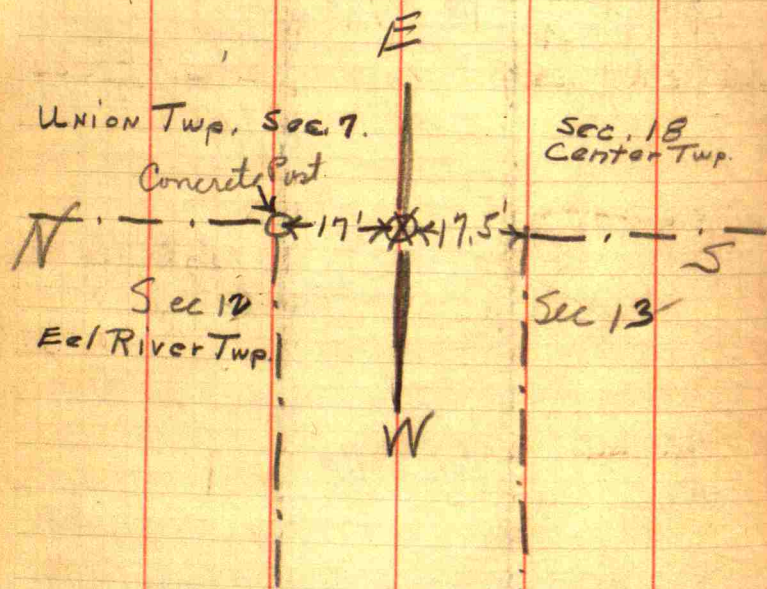 E
Union Twp. Sec. 7.
Sec. 18
Center Twp.
Concrete Post
N
17'
17.5'
S
Sec 12
Eel River Twp.
Sec 13
W